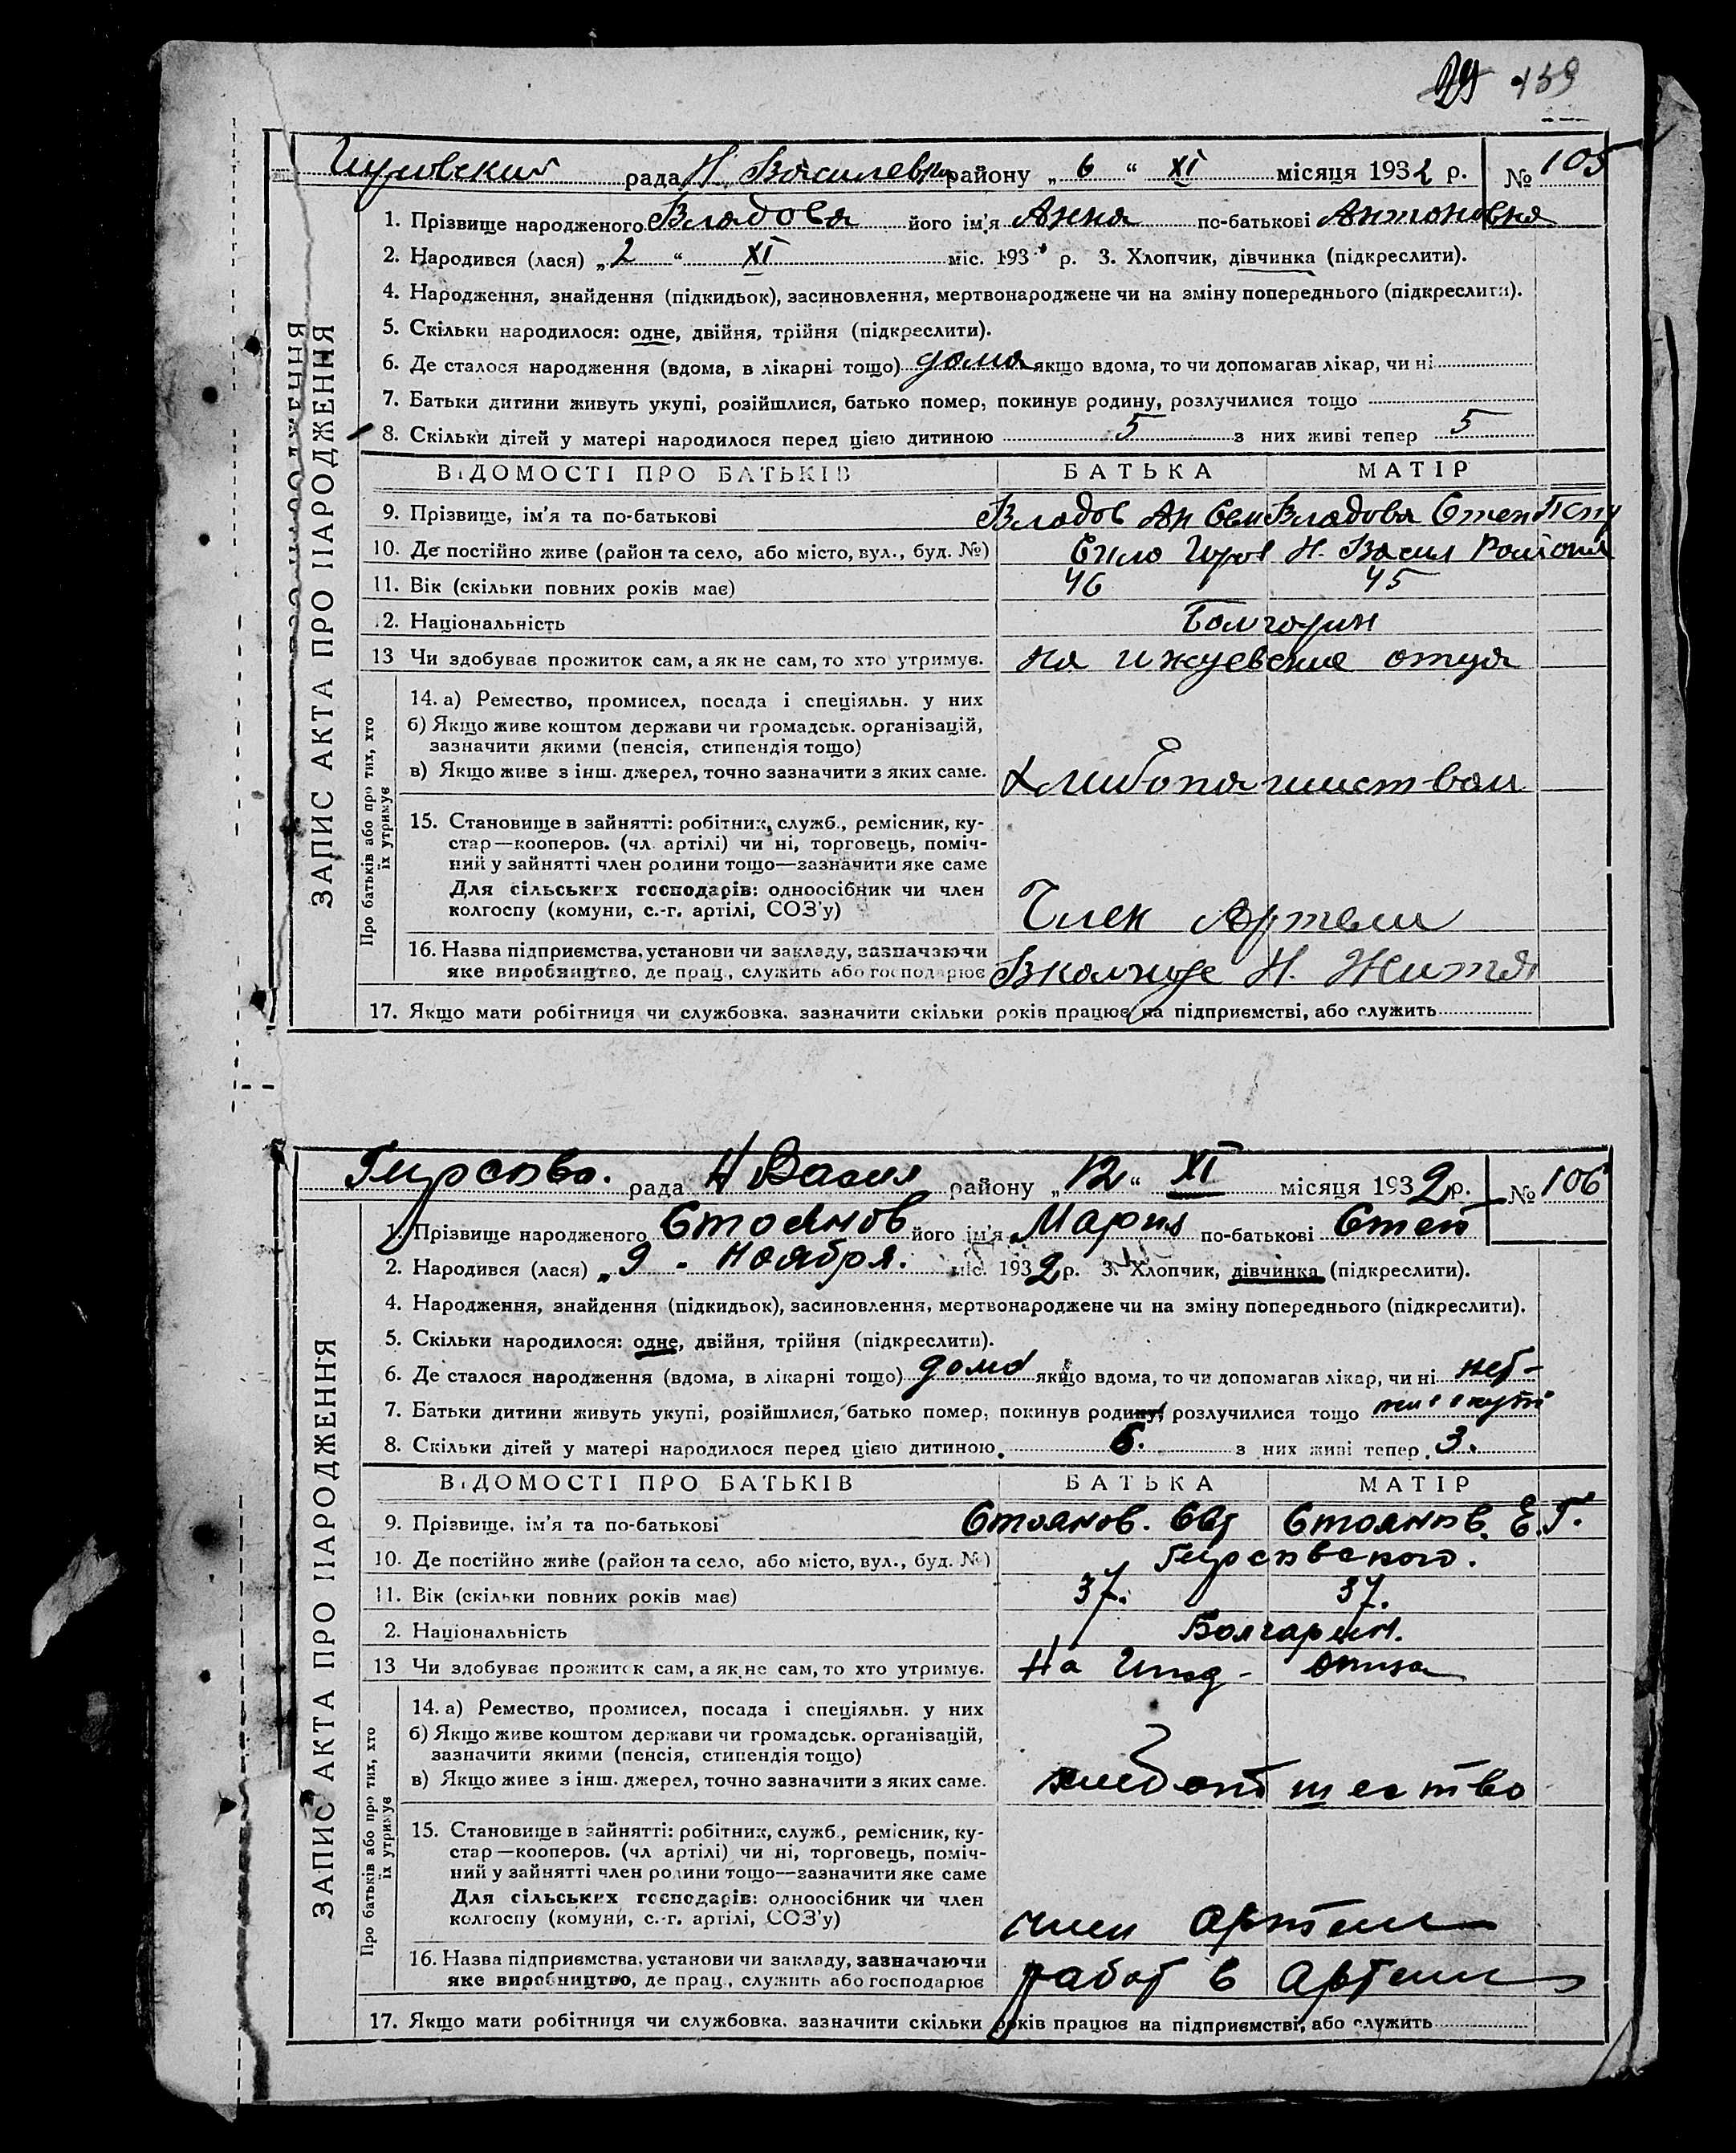 159
рада Н. Василевки району „ 6 “ XI місяця 1932 р. № 105
1. Прізвище народженого Владова його ім'я Анна по-батькові Антоновна
2. Народився (лася) „ 2 “ XI міс. 193 р. 3. Хлопчик, дівчинка (підкреслити).
4. Народження, знайдення (підкидьок), засиновлення, мертвонароджене чи на зміну попереднього (підкреслити).
5. Скільки народилося: одне, двійня, трійня (підкреслити).
6. Де сталося народження (вдома, в лікарні тощо) дома якщо вдома, то чи допомагав лікар, чи ні
7. Батьки дитини живуть укупі, розійшлися, батько помер, покинув родину, розлучилися тощо
8. Скільки дітей у матері народилося перед цією дитиною 5 з них живі тепер 5
ВІДОМОСТІ ПРО БАТЬКІВ БАТЬКА МАТІР
9. Прізвище, ім'я та по-батькові Владов Ан Сем Владова Степ
10. Де постійно живе (район та село, або місто, вул., буд. №) Н. Васил Району
11. Вік (скільки повних років має) 46 45
12. Національність Болгарин
13 Чи здобуває прожиток сам, а як не сам, то хто утримує. на отца
14. а) Ремество, промисел, посада і спеціяльн. у них
б) Якщо живе коштом держави чи громадськ. організацій,
зазначити якими (пенсія, стипендія тощо)
в) Якщо живе з інш. джерел, точно зазначити з яких саме.
15. Становище в зайнятті: робітник, служб., ремісник, ку-
стар—кооперов. (чл. артілі) чи ні, торговець, поміч-
ний у зайнятті член родини тощо—зазначити яке саме
Для сільських господарів: одноосібник чи член
колгоспу (комуни, с.-г. артілі, СОЗ'у) Член Артели
16. Назва підприємства, установи чи закладу, зазначаючи
яке виробництво, де прац., служить або господарює Н. Життя
17. Якщо мати робітниця чи службовка, зазначити скільки років працює на підприємстві, або служить
ЗАПИС АКТА ПРО НАРОДЖЕННЯ
Про батьків або про тих, хто
їх утримує
Гирсово. рада Н Васил району „ 12 “ XI місяця 1932 р. № 106
1. Прізвище народженого Стоянов його ім'я Мария по-батькові
2. Народився (лася) „ 9 - ноября. міс. 1932 р. 3. Хлопчик, дівчинка (підкреслити).
4. Народження, знайдення (підкидьок), засиновлення, мертвонароджене чи на зміну попереднього (підкреслити).
5. Скільки народилося: одне, двійня, трійня (підкреслити).
6. Де сталося народження (вдома, в лікарні тощо) дома якщо вдома, то чи допомагав лікар, чи ні нет -
7. Батьки дитини живуть укупі, розійшлися, батько помер, покинув родину, розлучилися тощо
8. Скільки дітей у матері народилося перед цією дитиною. 6. з них живі тепер 3.
ВІДОМОСТІ ПРО БАТЬКІВ БАТЬКА МАТІР
9. Прізвище, ім'я та по-батькові Стоянов. Стоянов. Е. Г.
10. Де постійно живе (район та село, або місто, вул., буд. №) Гирсовского.
11. Вік (скільки повних років має) 37. 37.
2. Національність Болгарин.
13 Чи здобуває прожиток сам, а як не сам, то хто утримує. На Ижд - отца
14. а) Ремество, промисел, посада і спеціяльн. у них
б) Якщо живе коштом держави чи громадськ. організацій,
зазначити якими (пенсія, стипендія тощо)
в) Якщо живе з інш. джерел, точно зазначити з яких саме.
15. Становище в зайнятті: робітник, служб., ремісник, ку-
стар—кооперов. (чл. артілі) чи ні, торговець, поміч-
ний у зайнятті член родини тощо—зазначити яке саме
Для сільських господарів: одноосібник чи член
колгоспу (комуни, с.-г. артілі, СОЗ'у) член артели
16. Назва підприємства, установи чи закладу, зазначаючи
яке виробництво, де прац., служить або господарює работ в артели
17. Якщо мати робітниця чи службовка, зазначити скільки років працює на підприємстві, або служить
ЗАПИС АКТА ПРО НАРОДЖЕННЯ
Про батьків або про тих, хто
їх утримує